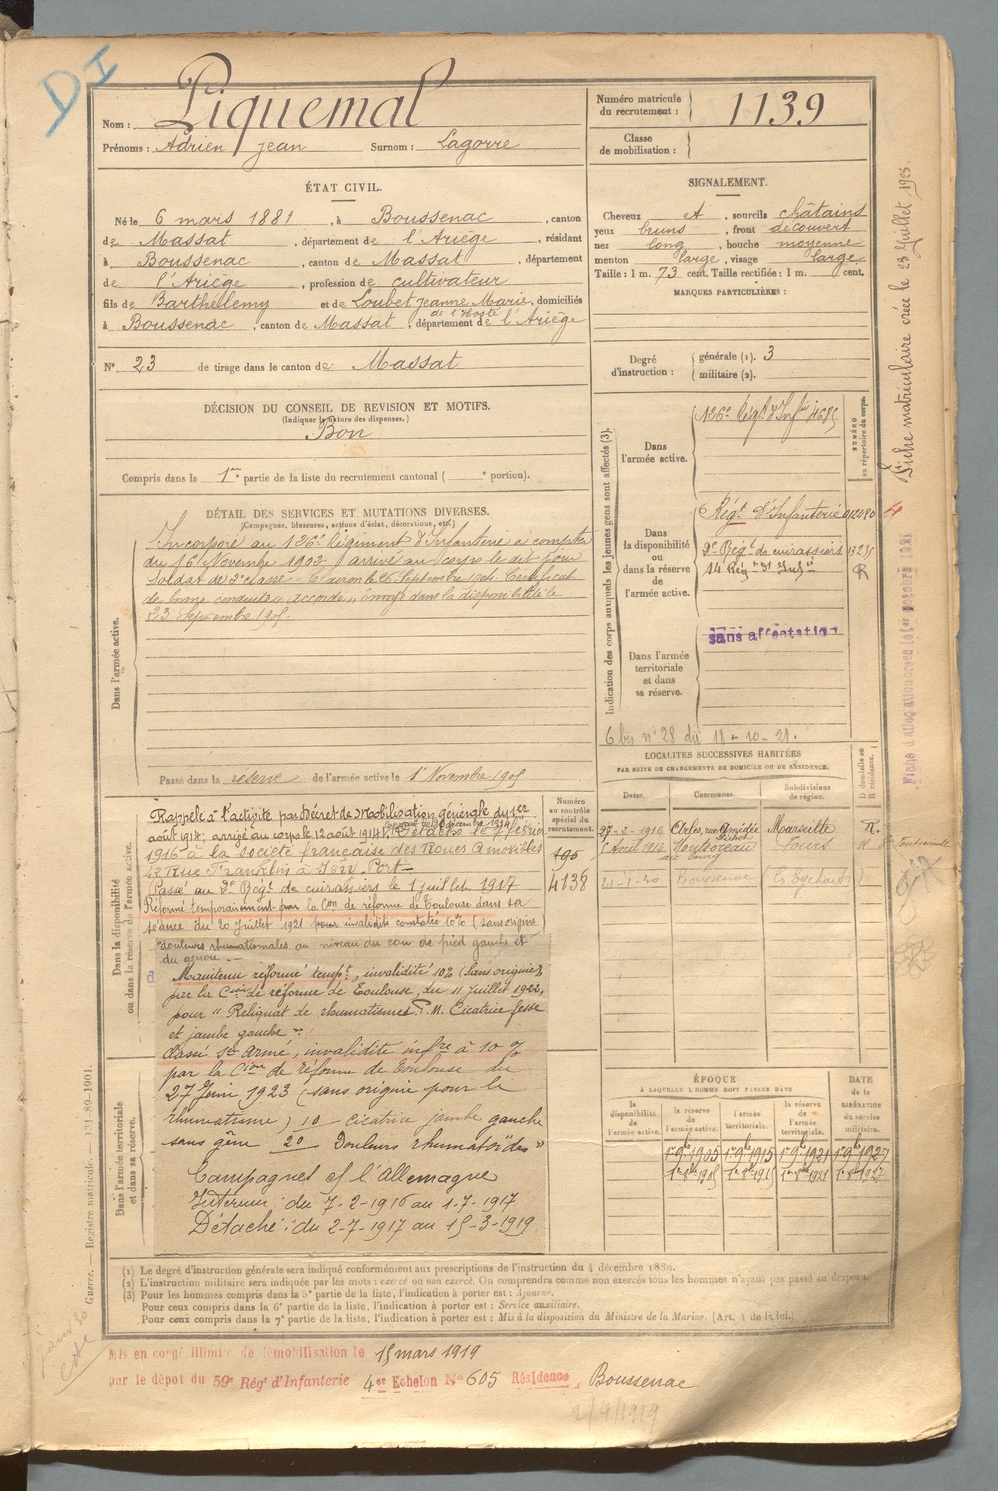 DI
Nom : Piquemal
Prénoms : Adrien Jean Surnom : Lagorre
Numéro matricule du recrutement : 1139
Classe de mobilisation :
ÉTAT CIVIL.
Né le 6 mars 1881, à Boussenac, canton
de Massat, département de l'Ariège, résidant
à Boussenac, canton de Massat, département
de l'Ariège, profession de cultivateur
fils de Barthélemy et de Loubet Jeanne Marie, domiciliés
de l'Hoste
à Boussenac, canton de Massat, département de l'Ariège
N° 23 de tirage dans le canton de Massat
SIGNALEMENT.
Cheveux et, sourcils châtains
yeux bruns, front découvert
nez long, bouche moyenne
menton large, visage large
Taille : 1 m. 73 cent. Taille rectifiée : 1 m. cent.
MARQUES PARTICULIÈRES :
Degré d'instruction : générale (1). 3
militaire (2).
DÉCISION DU CONSEIL DE REVISION ET MOTIFS.
(Indiquer la nature des dispenses.)
Bon
Compris dans la 1re partie de la liste du recrutement cantonal ( e portion).
DÉTAIL DES SERVICES ET MUTATIONS DIVERSES.
(Campagnes, blessures, actions d'éclat, décorations, etc.)
Dans l'armée active.
Incorporé au 126e Régiment d'Infanterie à compter
du 16 Novembre 1902. arrivé au corps le dit jour
Soldat de 2e classe. Clairon le 26 Septembre 1904. Certificat
de bonne conduite "accordé". Envoyé dans la disponibilité le
23 Septembre 1905.
Passé dans la réserve de l'armée active le 1er Novembre 1905
Indication des corps auxquels les jeunes gens sont affectés (3).
NUMÉRO au répertoire du corps.
Dans l'armée active.
126e Régt d'Infie 4685
Dans la disponibilité ou dans la réserve de l'armée active.
Régt d'Infanterie 012480
2e Régt de cuirassiers
14 Régt d'Infie
R
sans affectation
Dans l'armée territoriale et dans sa réserve.
6 bis n° 28 du 18-10-21.
Dans la disponibilité ou dans la réserve de l'armée active.
Rappelé à l'activité par Décret de Mobilisation générale du 1er
août 1914; arrivé au corps le 12 août 1914. Détaché le 7 février
1916 à la société française des Roues Amovibles
42 Rue Franklin à Ivry Port
Passé au 2e Régt de cuirassiers le 1 juillet 1917
Réformé temporairement par la Con de réforme de Toulouse dans sa
séance du 20 juillet 1921 pour invalidité constatée 10% (sans origine)
douleurs rhumatismales au niveau du cou de pied gauche et
du genou.
Maintenu réformé tempt, invalidité 10% (sans origine),
par la Cion de réforme de Toulouse, du 11 Juillet 1922,
pour "Reliquat de rhumatismes. P.M. Cicatrice fesse
et jambe gauche"
Classé St Armé, invalidité infre à 10 %
par la Cion de réforme de Toulouse du
27 Juin 1923 (sans origine pour le
rhumatisme) 1° cicatrice jambe gauche
sans gêne 2° Douleurs rhumatoïdes"
Campagnes c/ l'Allemagne
Intérieur : du 7-2-1916 au 1-7-1917
Détaché : du 2-7-1917 au 15-3-1919
Dans l'armée territoriale et dans sa réserve.
Numéro au contrôle spécial du recrutement.
195
4138
LOCALITÉS SUCCESSIVES HABITÉES
PAR SUITE DE CHANGEMENTS DE DOMICILE OU DE RÉSIDENCE.
Dates. Communes. Subdivisions de région. D domicile ou R résidence.
27-2-1910 Arles, rue Amédée Pichot Marseille R.
1 Avril 1914 Montsoreau au bourg Tours R
21-1-30 Boussenac
ÉPOQUE
À LAQUELLE L'HOMME DOIT PASSER DANS
la disponibilité de l'armée active. la réserve de l'armée active. l'armée territoriale. la réserve de l'armée territoriale.
DATE de la LIBÉRATION du service militaire.
1er 9bre 1905 1er 9bre 1915 1er 9bre 1921 1er 9bre 1927
1er 8bre 1905 1er 8bre 1915 1er 8bre 1921 1er 8bre 1927
(1) Le degré d'instruction générale sera indiqué conformément aux prescriptions de l'instruction du 4 décembre 1889.
(2) L'instruction militaire sera indiquée par les mots : exercé ou non exercé. On comprendra comme non exercés tous les hommes n'ayant pas passé au drapeau.
(3) Pour les hommes compris dans la 5e partie de la liste, l'indication à porter est : Ajourné.
Pour ceux compris dans la 6e partie de la liste, l'indication à porter est : Service auxiliaire.
Pour ceux compris dans la 7e partie de la liste, l'indication à porter est : Mis à la disposition du Ministre de la Marine. (Art. 4 de la loi.)
Mis en congé illimité de démobilisation le 15 mars 1919
par le dépôt du 59e Régt d'Infanterie 4er Echelon N° 605 Résidence, Boussenac
2/4/1919
Guerre. — Registre matricule. — 1901.
Fiche matriculaire créée le 23 Juillet 1923.